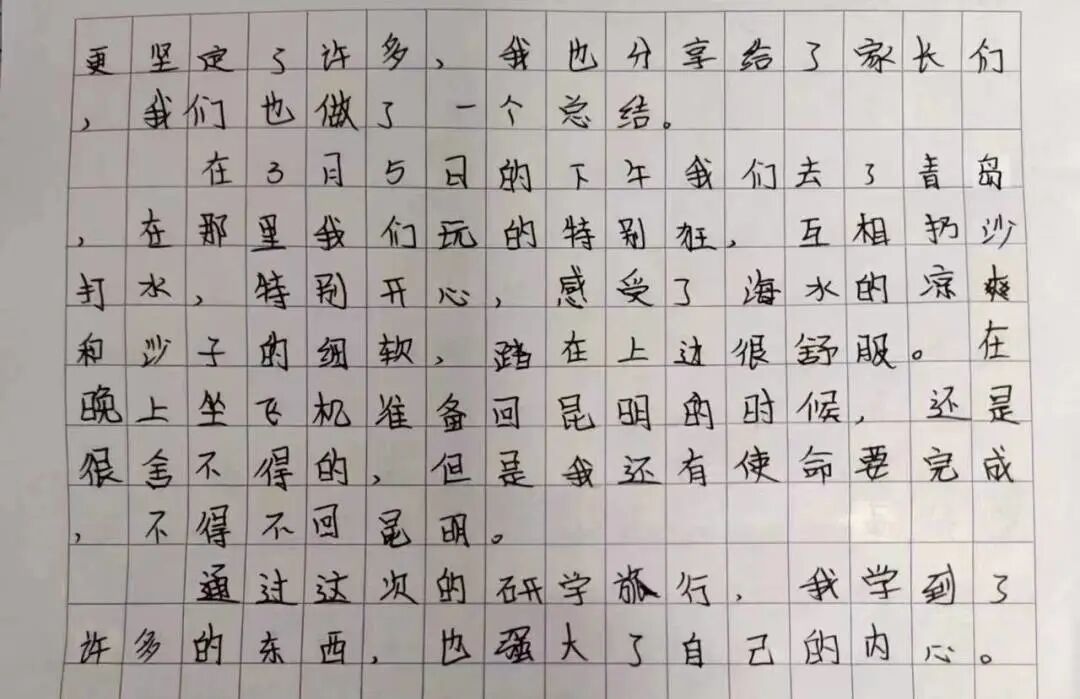 更坚定了许多，我也分享给了家长们
，我们也做了一个总结。
在3月5日的下午我们去了青岛
，在那里我们玩的特别狂，互相扔沙
打水，特别开心，感受了海水的凉爽
和沙子的细软，踏在上边很舒服。在
晚上坐飞机准备回昆明的时候，还是
很舍不得的，但是我还有使命要完成
，不得不回昆明。
通过这次的研学旅行，我学到了
许多的东西，也强大了自己的内心。